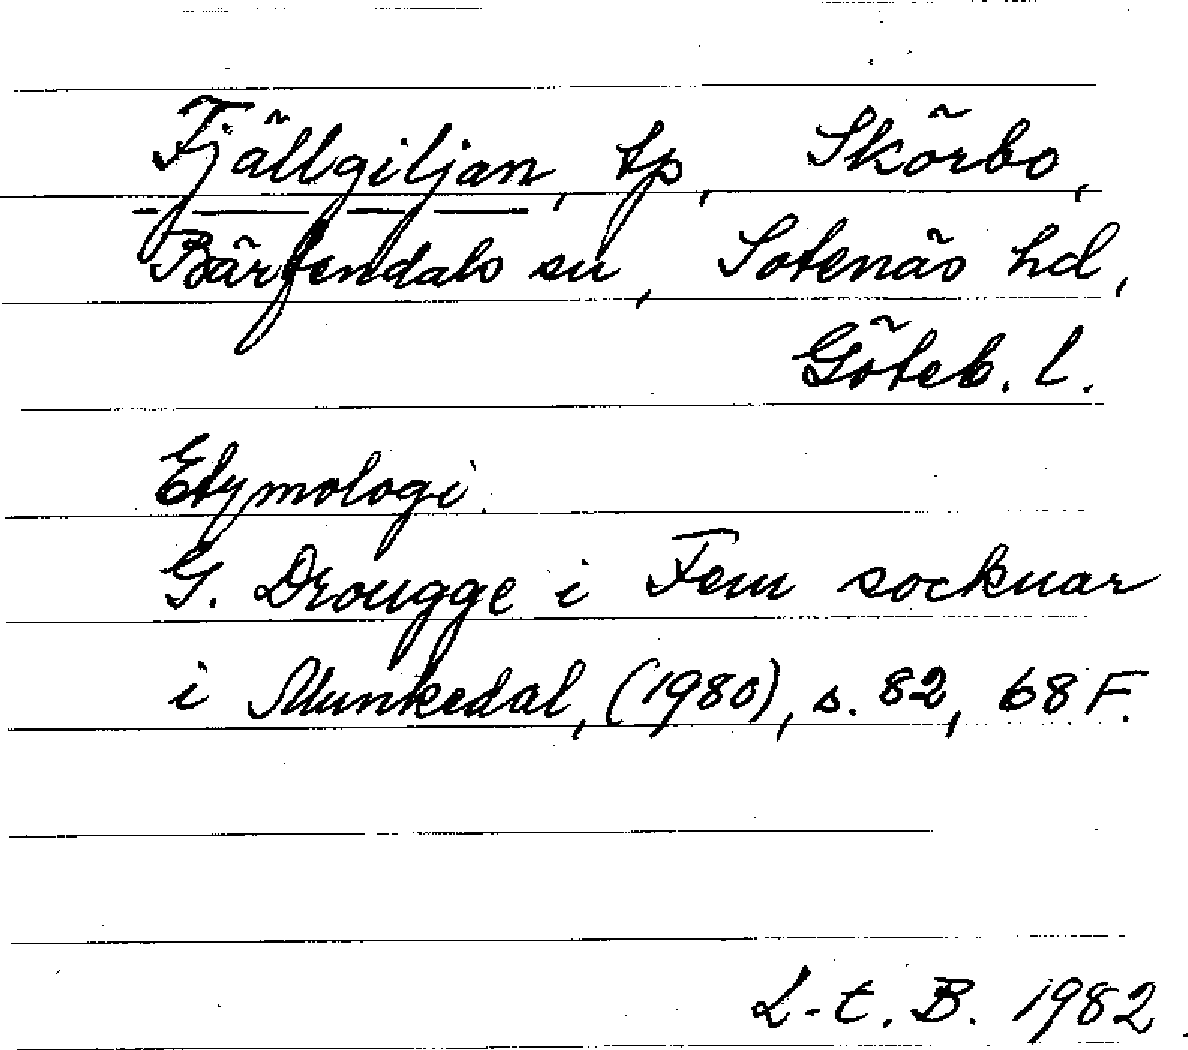 Fjällgiljan, tp, Skörbo,
Bärfendals sn, Sotenäs hd,
Göteb. l.
Etymologi.
G. Drougge i Fem socknar
i Munkedal, (1980), s. 82, 68 F.
L-t. B. 1982.